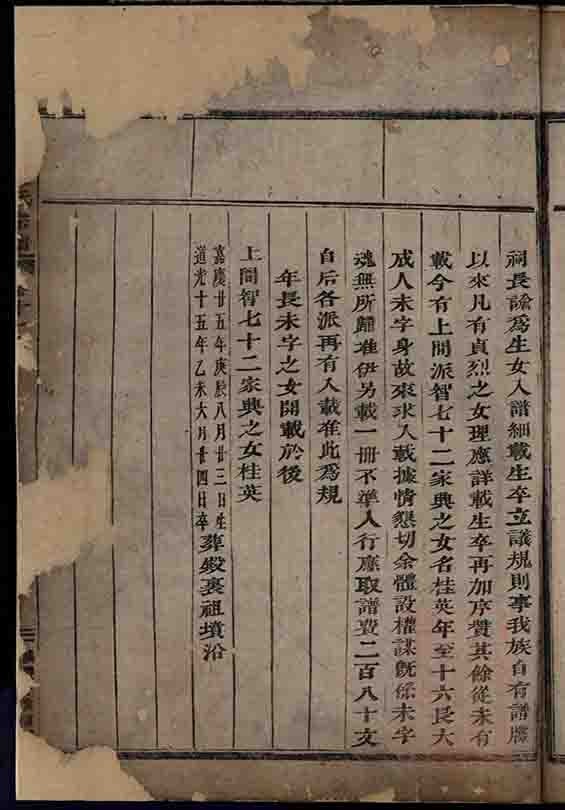 祠長諭為生女入譜細載生卒立議規則事我族自有譜牒
以來凡有貞烈之女理應詳載生卒再加序贊其餘從未有
載今有上間派智七十二家典之女名桂英年至十六長大
成人未字身故來求入載據情懇切余體設權謀旣係未字
魂無所歸准伊另載一冊不準人行應取譜費二百八十文
自后各派再有入載准此為規
年長未字之女開載於後
上間智七十二家典之女桂英
嘉慶廿五年庚辰八月廿三日生
道光十五年乙未六月廿四日卒
葬毀裏祖墳沿